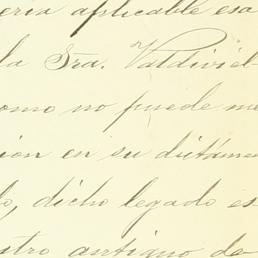 eria aplicable esa
la Sra. Valdiviel-
omo no puede me
ion en su dictáme
lo, dicho legado es
stro antiguo de